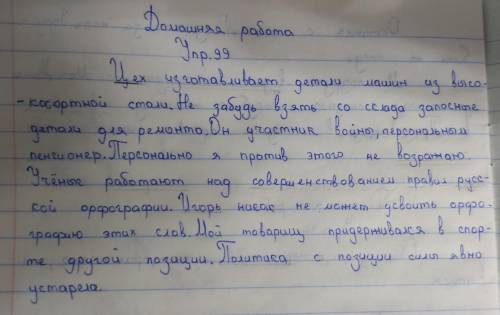 Домашняя работа
Упр.99
Цех изготавливает детали машин из высо-
-косортной стали. Не забудь взять со склада запасные
детали для ремонта. Он участник войны, персональным
пенсионер. Персонально я против этого не возражаю.
Учёные работают над совершенствованием правил русс-
кой орфографии. Игорь никак не может усвоить орфо-
графию этих слов. Мой товарищ придерживался в спо-
ре другой позиции. Политика с позиции силы явно
устарела.